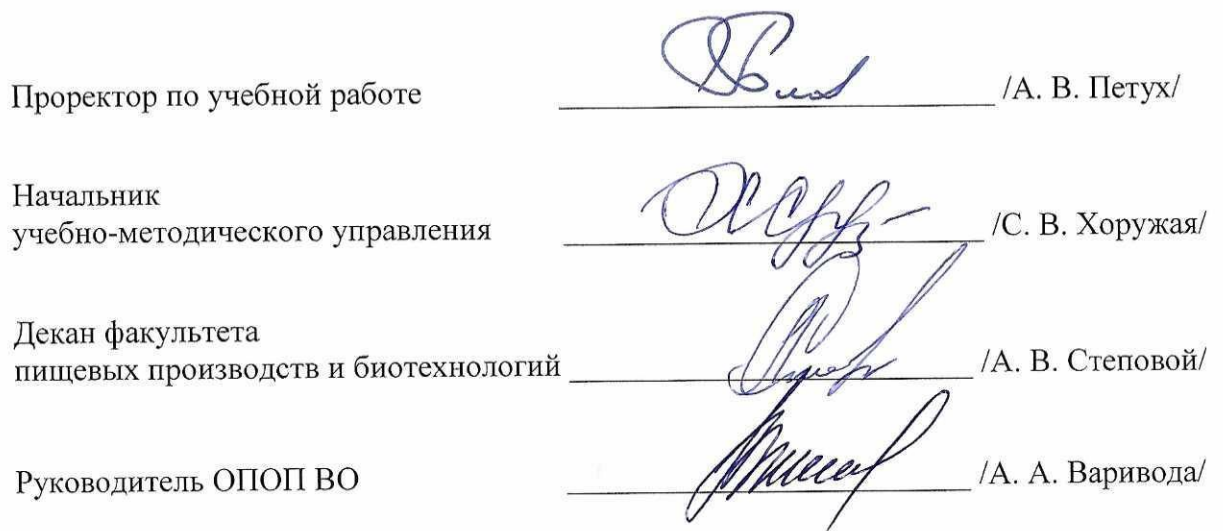 Проректор по учебной работе /А. В. Петух/
Начальник
учебно-методического управления /С. В. Хоружая/
Декан факультета
пищевых производств и биотехнологий /А. В. Степовой/
Руководитель ОПОП ВО /А. А. Варивода/